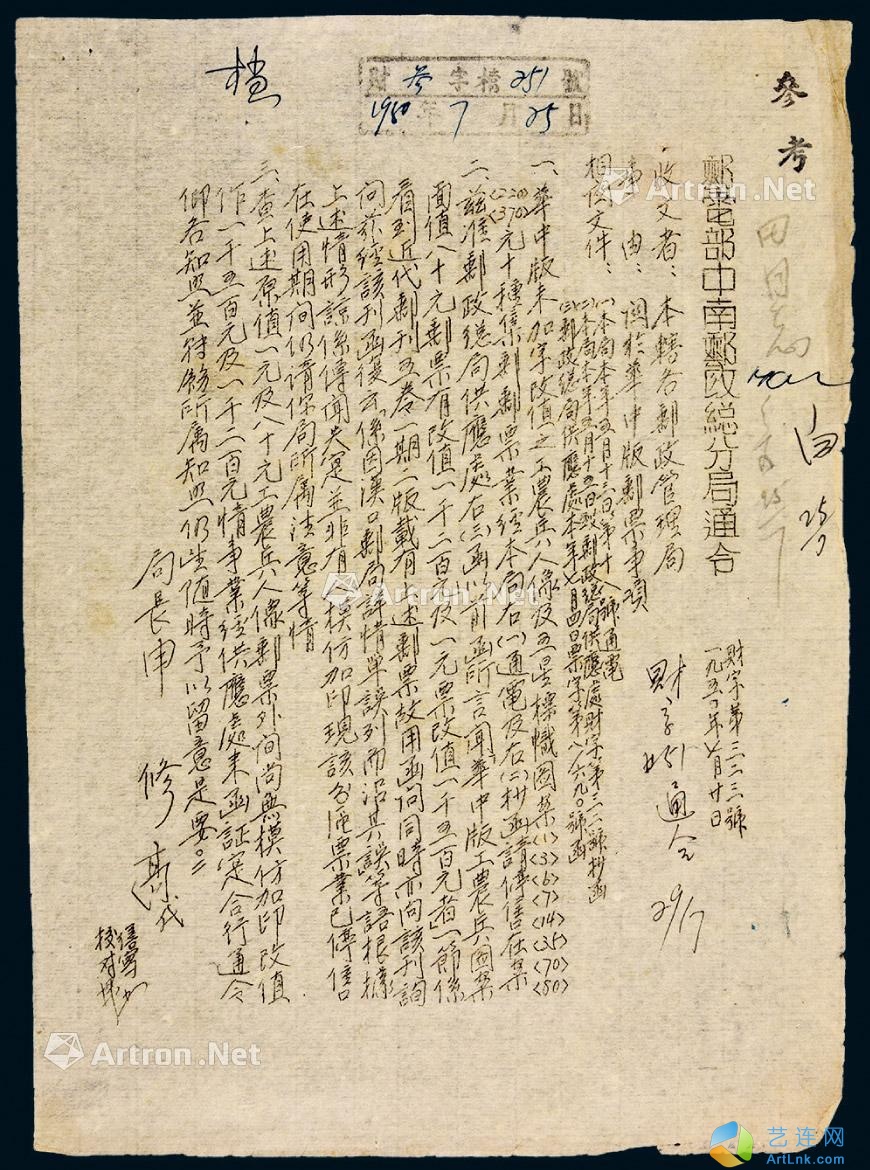 參考
郵電部中南郵政總分局通令
財字第三三三號
一九五〇年七月廿日
收文者：本轄各郵政管理局
事由：關於華中版郵票事項
相關文件：(一)本局本年五月十三日第十八號通電
(二)本局本年五月十五日致郵政總局供應處財字第三二號抄函
(三)郵政總局供應處本年七月四日票字第八六九〇號函
財字 通令 29/7
一、華中版未加字改值之工農兵人像及五星標幟圖案(1)(3)(6)(7)(14)(35)(70)(80)
(220)(370)元十種集郵郵票業經本局右(一)通電及右(二)抄函請停售在案
二、茲准郵政總局供應處右(三)函以前函所言聞華中版工農兵圖案
面值八十元郵票有改值一千二百元及一元票改值一千五百元者一節係
看到近代郵刊五卷一期二版載有上述郵票故用函問同時亦向該刊詢
問茲經該刊函復云「係因漢口郵局詳情單誤列而沿其誤」等語根據
上述情形諒係傳聞失實並非有人模仿加印現該各區票業已停售
在使用期間仍請你局所屬注意等情
三、查上述原值一元及八十元工農兵人像郵票外間尚無模仿加印改值
作一千五百元及一千二百元情事業經供應處來函証實合行通令
仰各知照並轉飭所屬知照仍生值時予以留意是要。
局長申 修
校對
檔
財 參 字檔 251 號
1950年 7 月 25 日
Artron.Net
Artron.Net
Artron.Net
Artron.Net
艺连网
ArtLnk.com